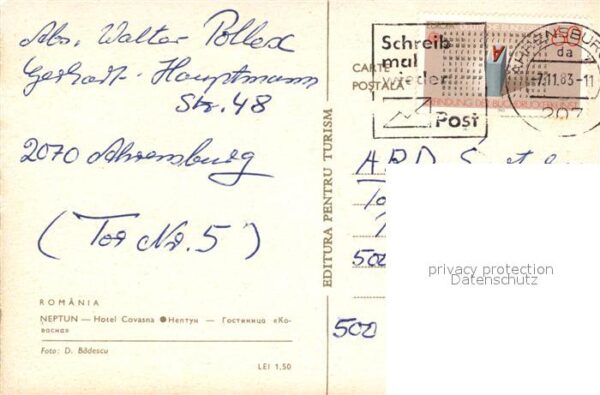 Abs. Walter Pollex
Gerhart-Hauptmann
Str. 48
2070 Ahrensburg
(Tor Nr. 5)
ROMÂNIA
NEPTUN — Hotel Covasna ● Нептун — Гостиница «Ко-
васна»
Foto: D. Bădescu
LEI 1,50
EDITURA PENTRU TURISM
CARTE
POȘTALĂ
Schreib
mal
wieder
Post
60
AHRENSBURG
da
-7.11.83-11
207
ARD
500
500
privacy protection
Datenschutz